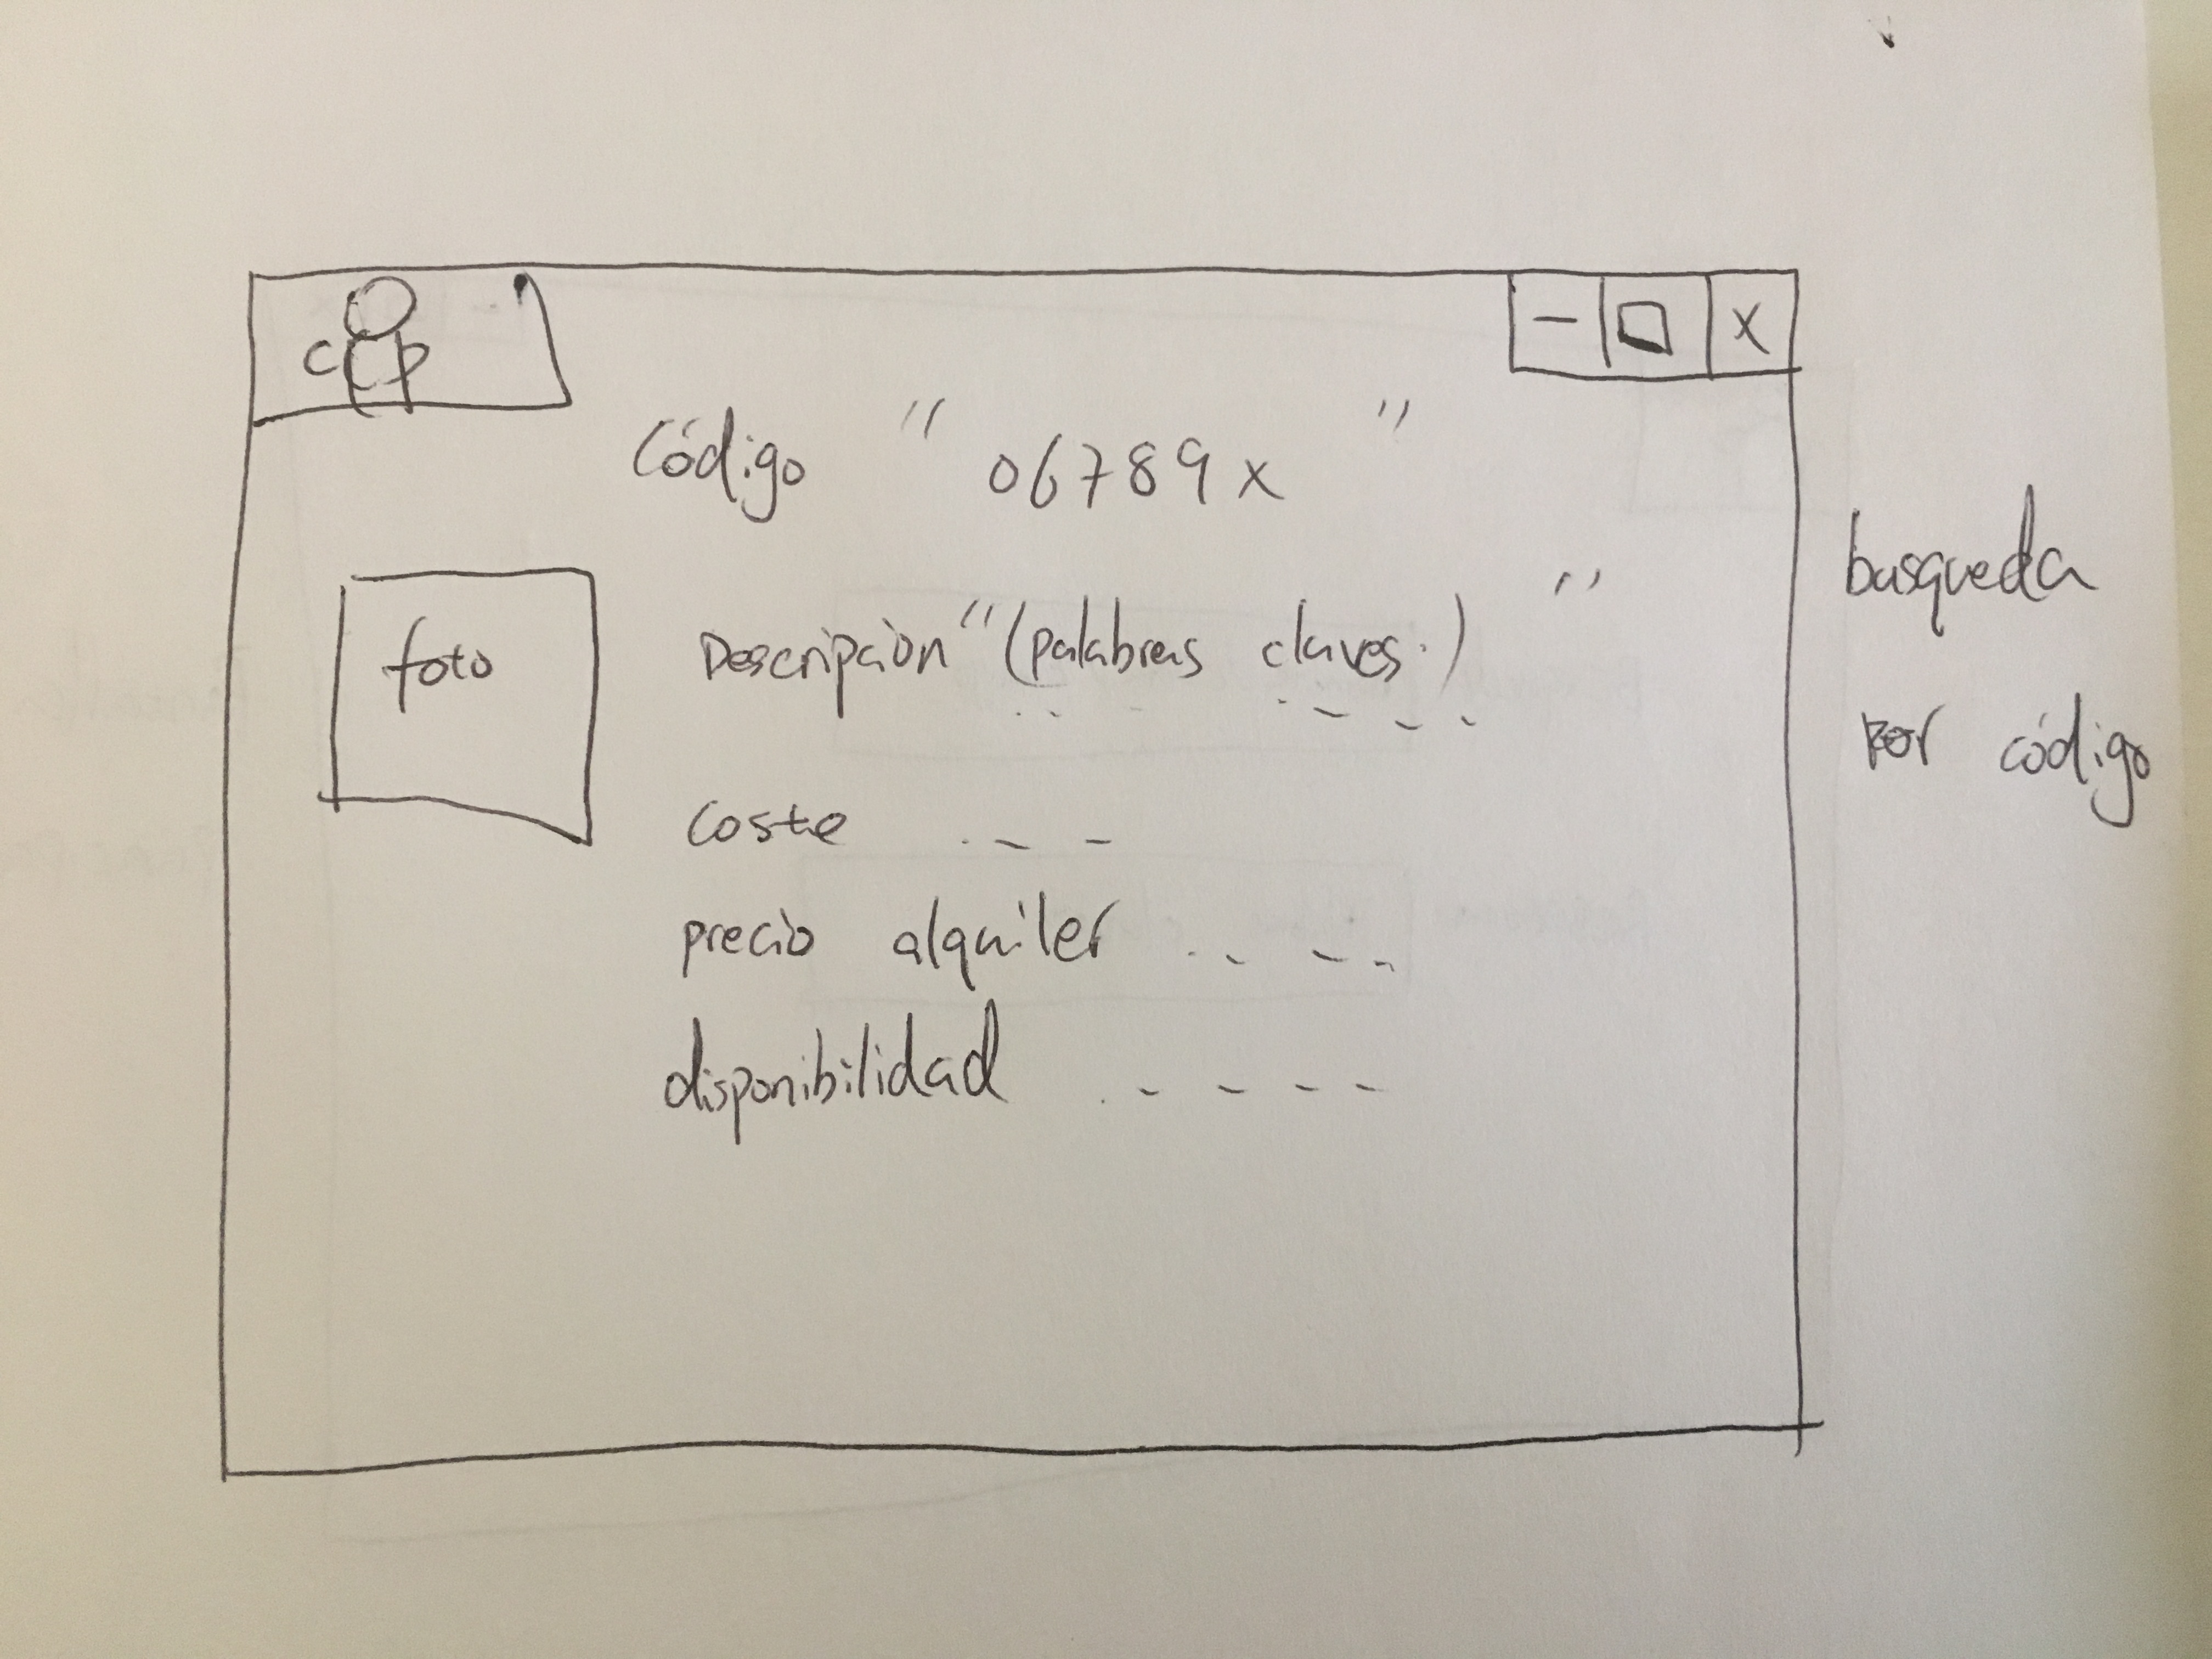 Código " 06789x "
foto
Descripcion "(palabras claves.) "
Coste
precio alquiler
disponibilidad
- □ x
busqueda
por código